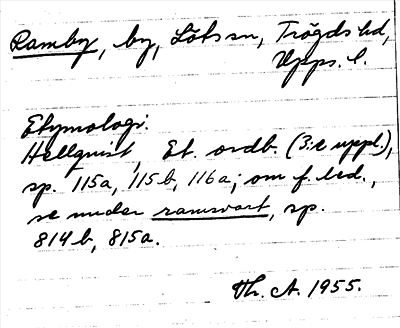 Ramby, by, Löts sn, Trögds hd,
Upps. l.
Etymologi.
Hellquist, Et. ordb. (3:e uppl.),
sp. 115a, 115b, 116a; om f. led.,
se under ramsvart, sp.
814b, 815a.
Th. A. 1955.